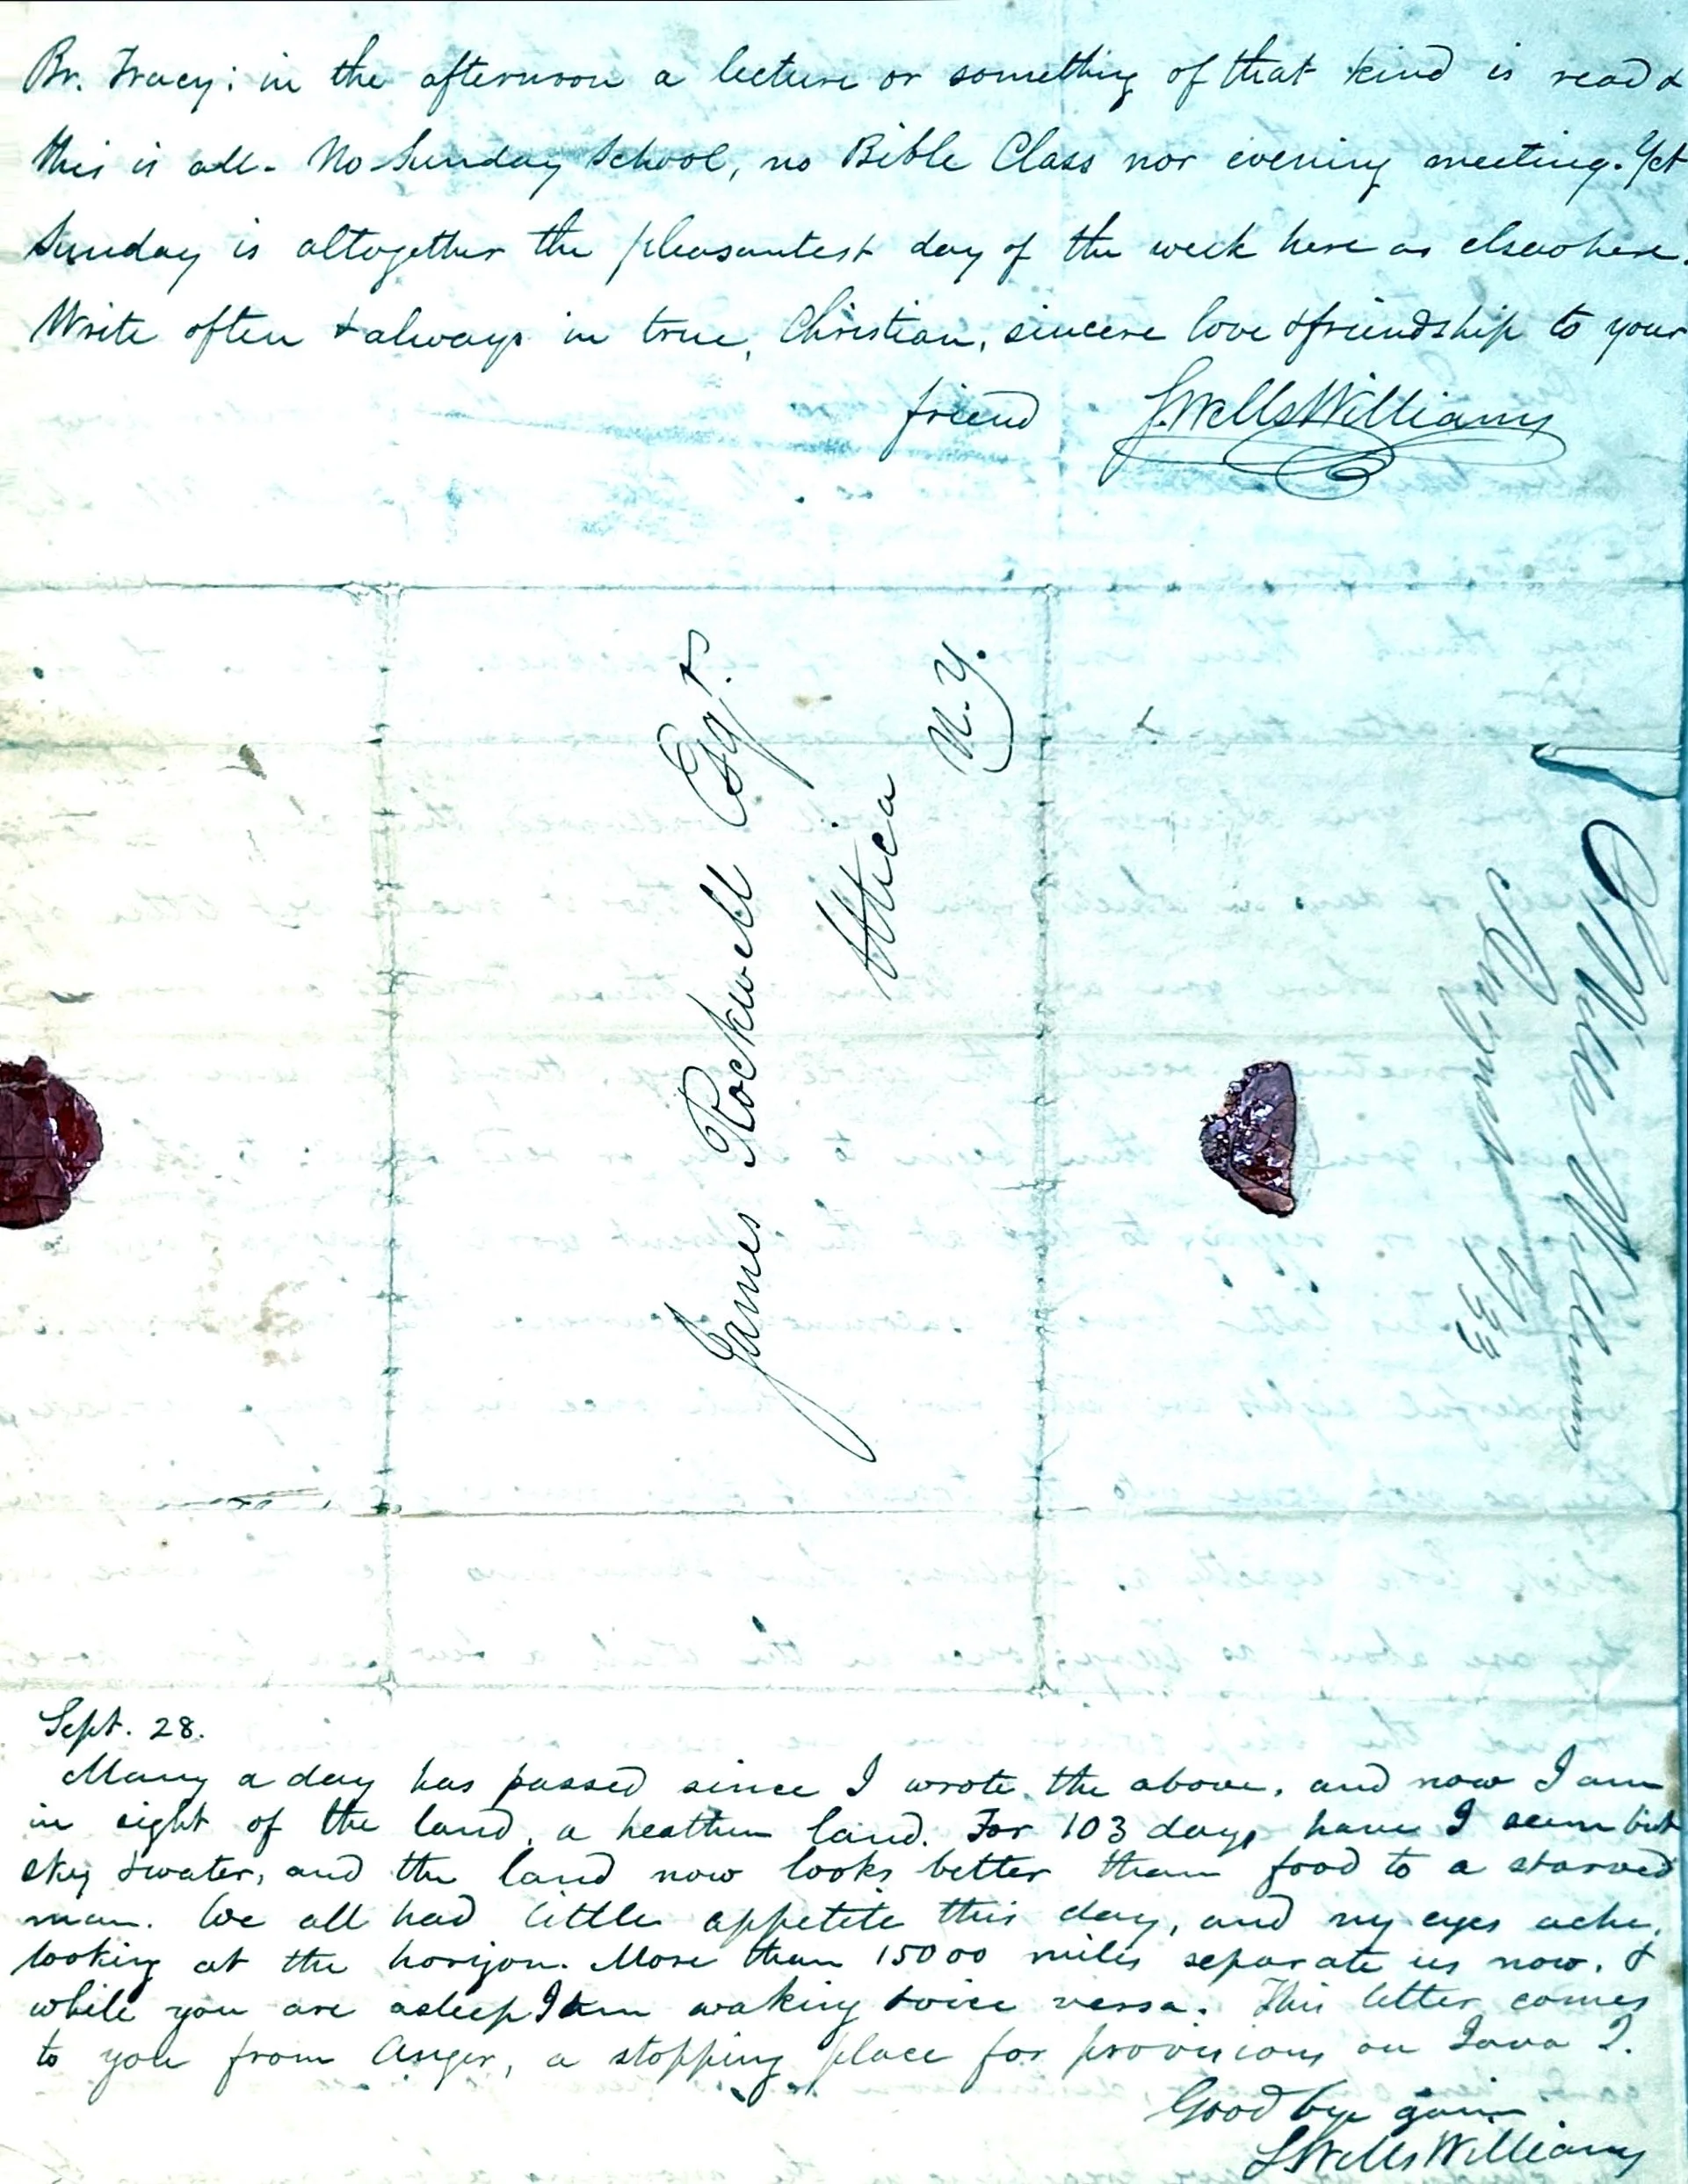 Br. Tracy; in the afternoon a lecture or something of that kind is read &
this is all. No Sunday School, no Bible Class nor evening meeting. Yet
Sunday is altogether the pleasantest day of the week here as elsewhere.
Write often & always in true, Christian, sincere love & friendship to your
friend S. Wells Williams
James Rockwell Esqr.
Utica
N.Y.
S Wells Williams
Sept. 28.
Many a day has passed since I wrote the above, and now I am
in sight of the land, a heathen land. For 103 days have I seen but
sky & water, and the land now looks better than food to a starved
man. We all had little appetite this day, and my eyes ache,
looking at the horizon. More than 15000 miles separate us now, &
while you are asleep I am waking & vice versa. This letter comes
to you from Anger, a stopping place for provisions on Java I.
Good bye gain.
S Wells Williams